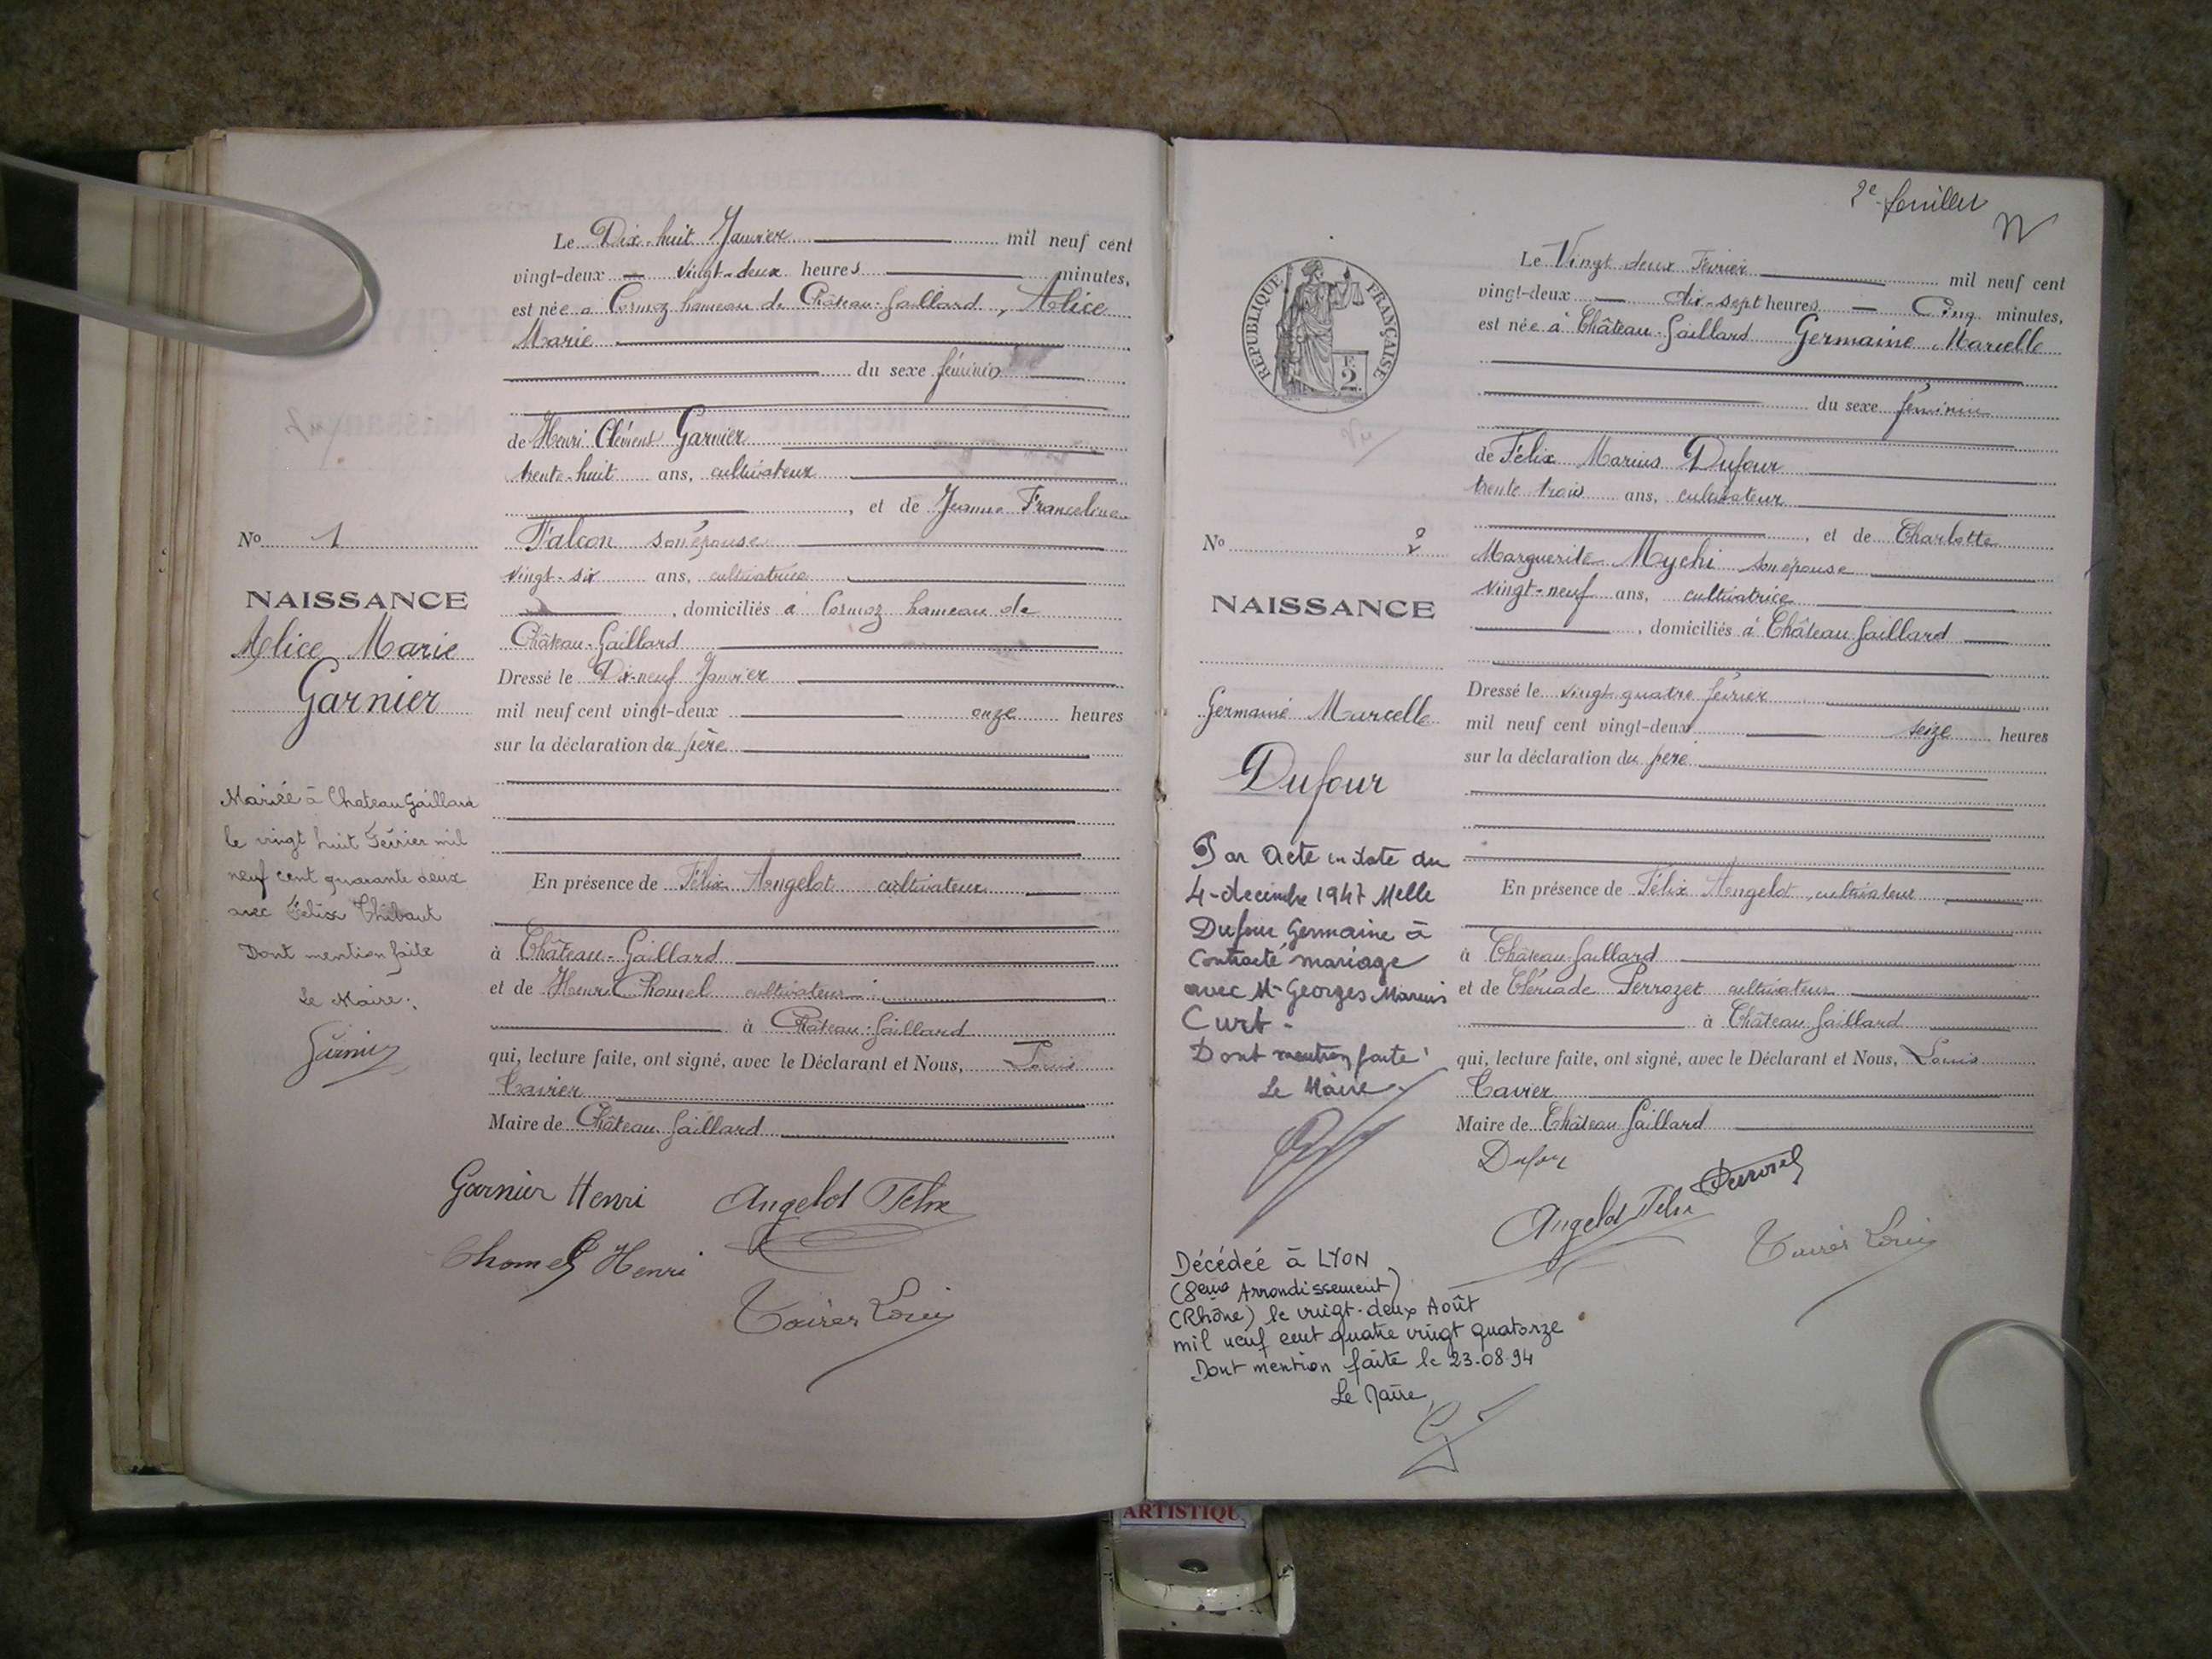 Le Dix-huit Janvier mil neuf cent
vingt-deux vingt-deux heures minutes,
est née à Cormoz hameau de Château-Gaillard, Alice
Marie
du sexe féminin
de Henri Clément Garnier
trente-huit ans, cultivateur
, et de Jeanne Franceline
Falcon son épouse
vingt-six ans, cultivatrice
, domiciliés à Cormoz hameau de
Château-Gaillard
Dressé le Dix-neuf Janvier
mil neuf cent vingt-deux onze heures
sur la déclaration du père
En présence de Félix Angelot cultivateur
à Château-Gaillard
et de Henri Chomel cultivateur
à Château-Gaillard
qui, lecture faite, ont signé, avec le Déclarant et Nous, Louis
Tavier
Maire de Château Gaillard
Garnier Henri Angelot Félix
Chomel Henri
Louis
No 1
NAISSANCE
Alice Marie
Garnier
Mariée à Chateau Gaillard
le vingt huit Février mil
neuf cent quarante deux
avec Félix Thibaut
Dont mention faite
Le Maire:
2e feuillet
RÉPUBLIQUE FRANÇAISE
2
Le Vingt deux Février mil neuf cent
vingt-deux dix-sept heures Cinq minutes,
est née à Château-Gaillard Germaine Marcelle
du sexe féminin
de Félix Marius Dufour
trente trois ans, cultivateur
, et de Charlotte
Marguerite Mychi son épouse
vingt-neuf ans, cultivatrice
, domiciliés à Château Gaillard
Dressé le vingt-quatre février
mil neuf cent vingt-deux seize heures
sur la déclaration du père
En présence de Félix Angelot, cultivateur
à Château-Gaillard
et de Clériade Perrozet cultivateur
à Château Gaillard
qui, lecture faite, ont signé, avec le Déclarant et Nous, Louis
Tavier
Maire de Château Gaillard
Dufour
Angelot Félix
Louis
No 2
NAISSANCE
Germaine Marcelle
Dufour
Par Acte en date du
4-decembre 1947 Melle
Dufour Germaine à
Contracté mariage
avec M-Georges Marius
Curt-
Dont mention faite
Le Maire
Décédée à LYON
(8ème Arrondissement)
(Rhône) le vingt-deux Août
mil neuf cent quatre vingt quatorze
Dont mention faite le 23.08.94
Le Maire
ARTISTIQU